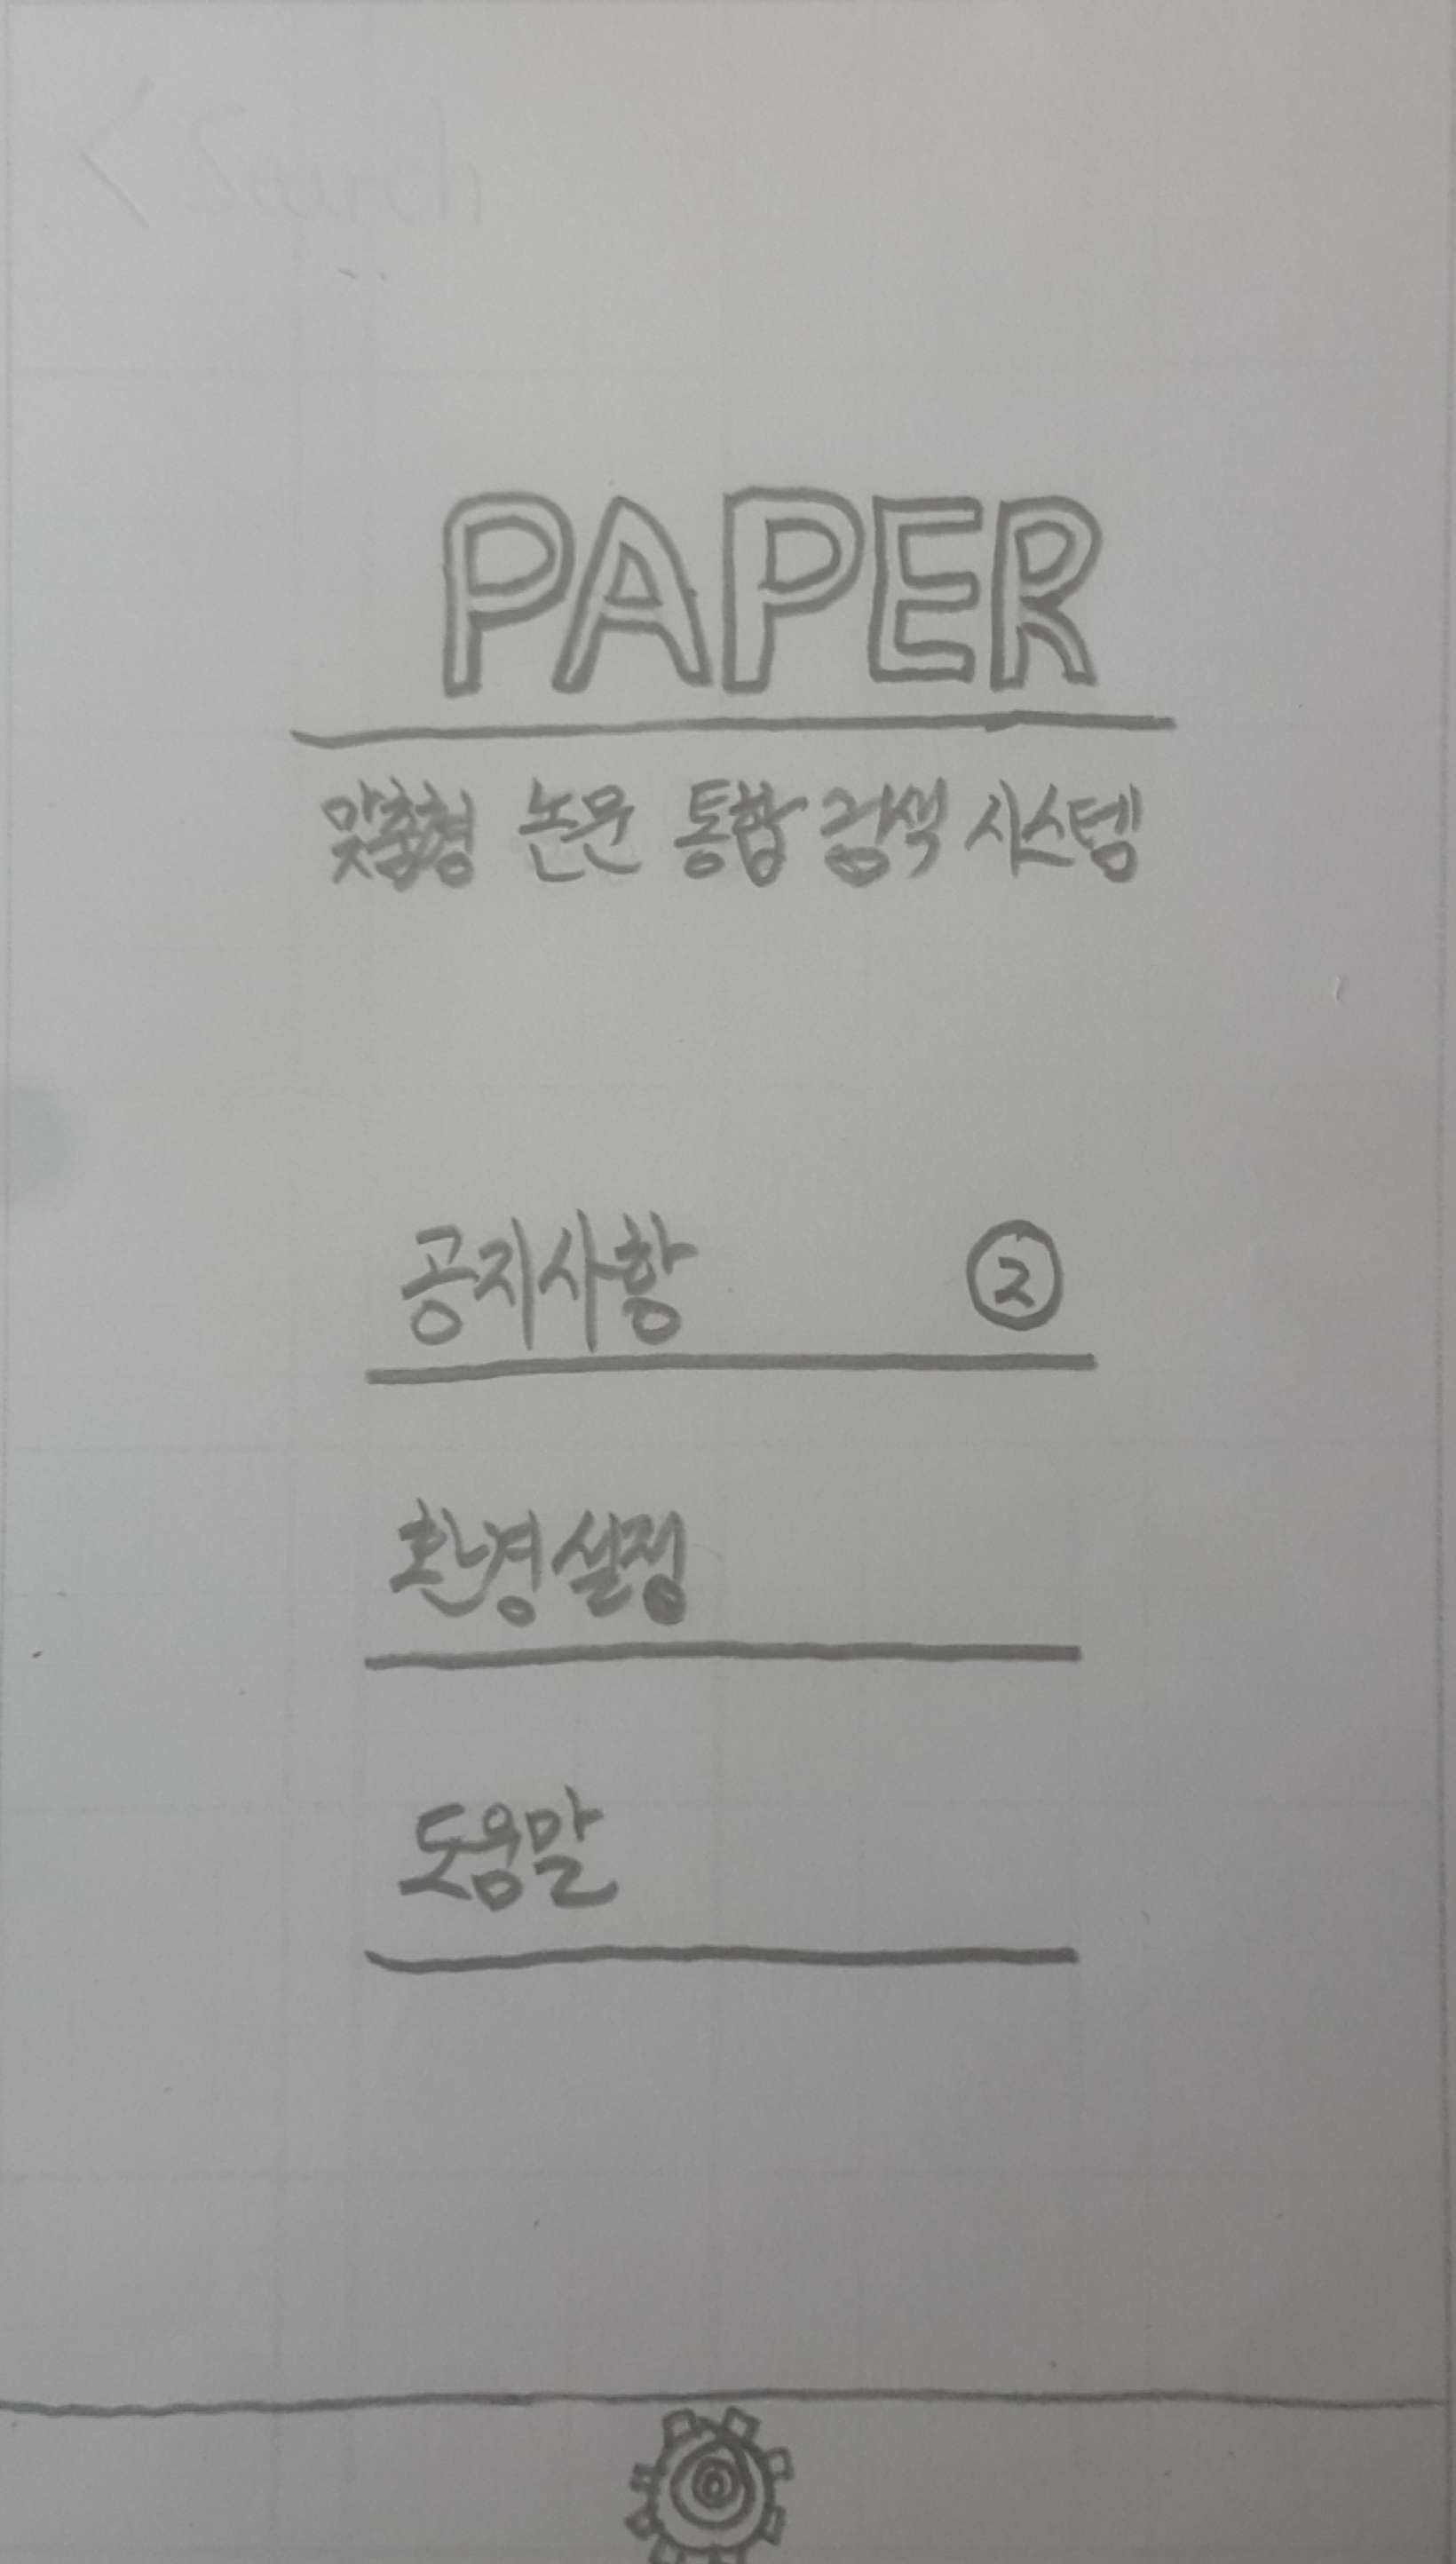 PAPER
맞춤형 논문 통합 검색 시스템
공지사항 2
환경설정
도움말